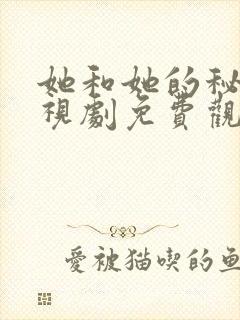 她和她的秘
視劇免費觀
愛被猫喫的魚